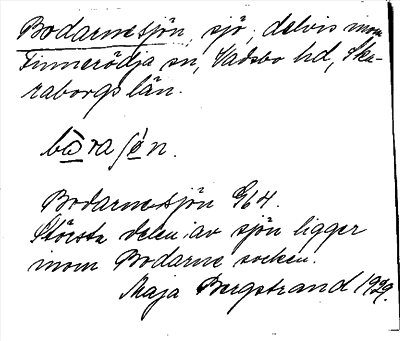 Bodarnesjön, sjö, delvis inom
Finnerödja sn, Vadsbo hd, Ska-
raborgs län.
Bodarnesjön G64.
Största delen av sjön ligger
inom Bodarne socken.
Maja Bergstrand 1929.